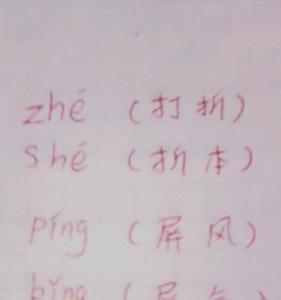 zhé (打折)
shé (折本)
píng (屏风)
bǐng (屏气)